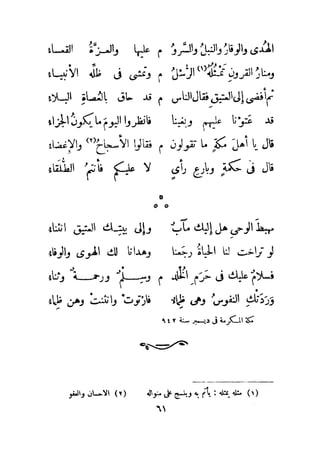 الهدى والوقار والنبل والسرو م عليها والعزة القعساء
ومنار القرون تمتثله (١) الرسل م وتمشى فى ظله الأنبياء
ثم أفضى إلى العتيق فقال الناس م قد حاق بالعصاة البلاء
قد عتونا عليهم وبغينا فانظروا اليوم ما يكون الجزاء
قال يا أهل مكة ما تقولون م فقالوا الأسجاح (٢) والإغضاء
قال فى حكمة وبارع رأى لا عليكم فأنتم الطلقاء
مهبط الوحى هل إليك مآب وإلى بيتك العتيق انثناء
لو تراخت لنا الحياة رجعنا وهدانا لك الهوى والوفاء
فسلام عليك فى حرم الخلد م وسلم ورحمة وثناء
وردتك النفوس وهى ظماء فارتوت وانثنت وهن ظماء
مكة المكرمة فى ديسمبر سنة ٩٤٢
(١) مثله يمثله : يأتم به وينسج على منواله (٢) الاحسان والعفو
٦١